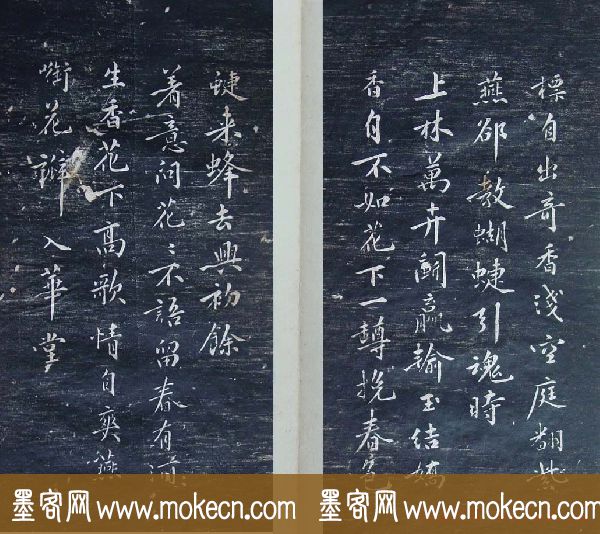 標自出奇香淺空庭翻紫
燕郤教蝴蜨引魂時
上林萬卉鬭贏輸玉結嬌
香自不如花下一罇挽春色
蜨来蜂去興初餘
着意问花〻不語留春有酒
生香花下高歌情自奕燕
銜花瓣入華堂
墨客网 www.mokecn.com
墨客网 www.mokecn.com